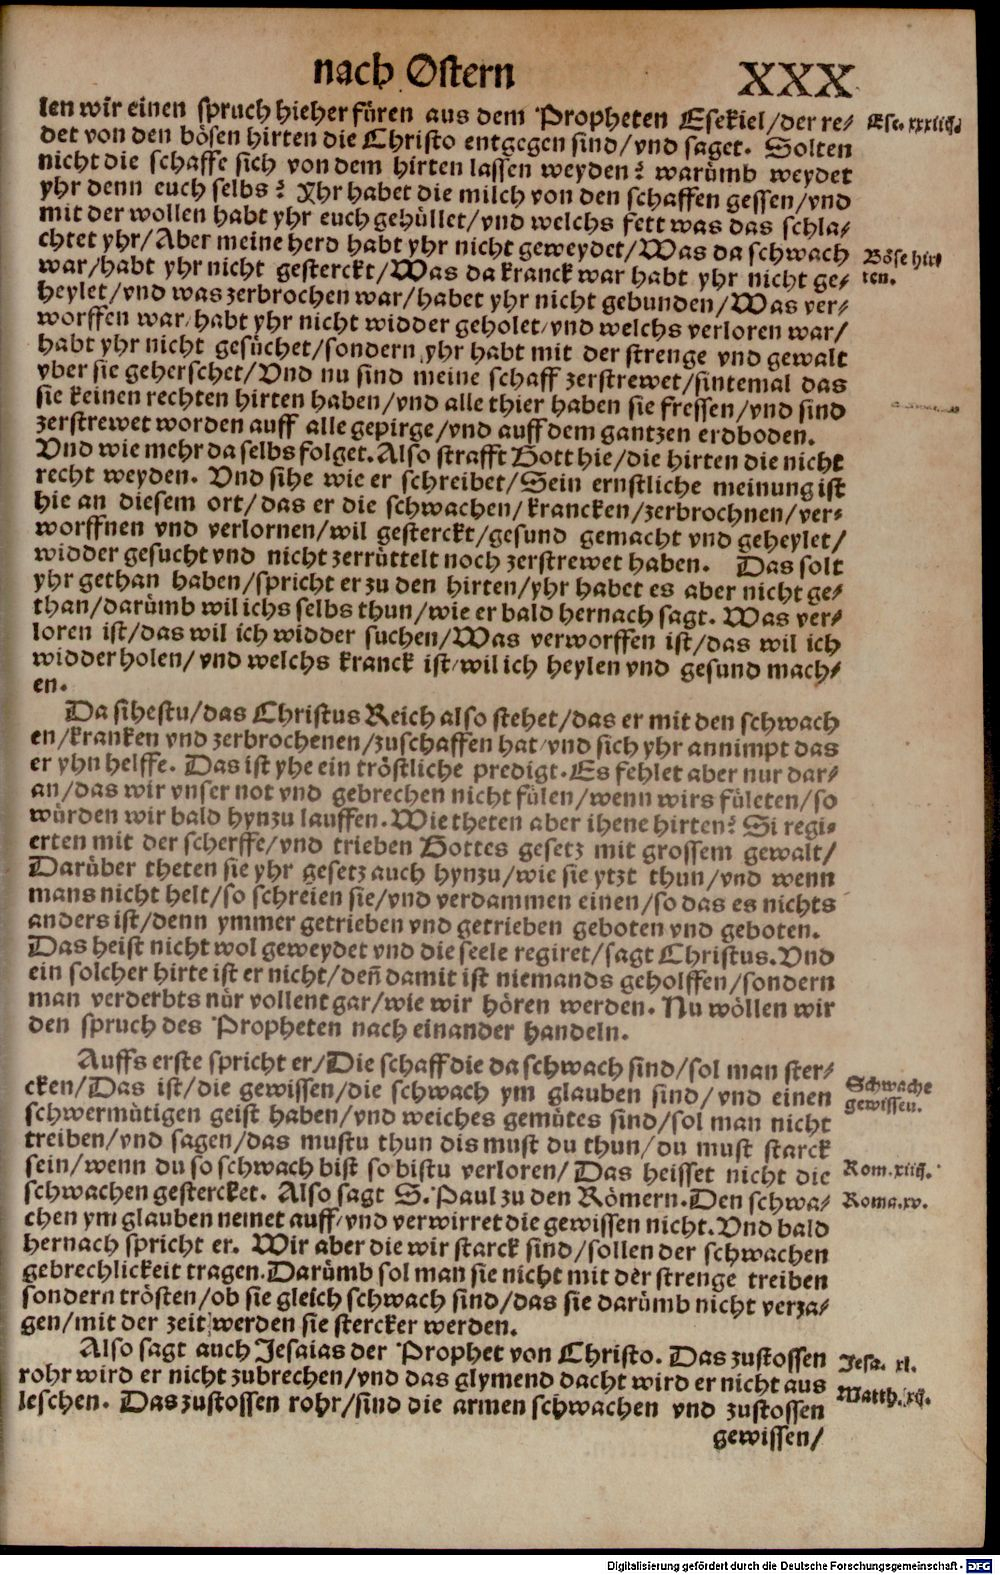 nach Ostern XXX
len wir einen spruch hieher füren aus dem Propheten Esekiel/der re-
det von den bösen hirten die Christo entgegen sind/vnd saget. Solten
nicht die schaffe sich von dem hirten lassen weyden? warümb weydet
yhr denn euch selbs? Yhr habet die milch von den schaffen gessen/vnd
mit der wollen habt yhr euch gehüllet/vnd welchs fett was das schla-
chtet yhr/Aber meine herd habt yhr nicht geweydet/Was da schwach
war/habt yhr nicht gesterckt/Was da kranck war habt yhr nicht ge-
heylet/vnd was zerbrochen war/habet yhr nicht gebunden/Was ver-
worffen war/habt yhr nicht widder geholet/vnd welchs verloren war/
habt yhr nicht gesüchet/sondern yhr habt mit der strenge vnd gewalt
vber sie geherschet/Vnd nu sind meine schaff zerstrewet/sintemal das
sie keinen rechten hirten haben/vnd alle thier haben sie fressen/vnd sind
zerstrewet worden auff alle gepirge/vnd auff dem gantzen erdboden.
Vnd wie mehr da selbs folget. Also strafft Gott hie/die hirten die nicht
recht weyden. Vnd sihe wie er schreibet/Sein ernstliche meinung ist
hie an diesem ort/das er die schwachen/krancken/zerbrochnen/ver-
worffnen vnd verlornen/wil gesterckt/gesund gemacht vnd geheylet/
widder gesucht vnd nicht zerrüttelt noch zerstrewet haben. Das solt
yhr gethan haben/spricht er zu den hirten/yhr habet es aber nicht ge-
than/darümb wil ichs selbs thun/wie er bald hernach sagt. Was ver-
loren ist/das wil ich widder suchen/Was verworffen ist/das wil ich
widder holen/vnd welchs kranck ist/wil ich heylen vnd gesund mach-
en.
Da sihestu/das Christus Reich also stehet/das er mit den schwach
en/kranken vnd zerbrochenen/zuschaffen hat/vnd sich yhr annimpt das
er yhn helffe. Das ist yhe ein tröstliche predigt. Es fehlet aber nur dar-
an/das wir vnser not vnd gebrechen nicht fülen/wenn wirs fületen/so
würden wir bald hynzu lauffen. Wie theten aber ihene hirten? Si regi-
erten mit der scherffe/vnd trieben Gottes gesetz mit grossem gewalt/
Darüber theten sie yhr gesetz auch hynzu/wie sie ytzt thun/vnd wenn
mans nicht helt/so schreien sie/vnd verdammen einen/so das es nichts
anders ist/denn ymmer getrieben vnd getrieben geboten vnd geboten.
Das heist nicht wol geweydet vnd die seele regiret/sagt Christus. Vnd
ein solcher hirte ist er nicht/den̄ damit ist niemands geholffen/sondern
man verderbts nür vollent gar/wie wir hören werden. Nu wöllen wir
den spruch des Propheten nach einander handeln.
Auffs erste spricht er/Die schaff die da schwach sind/sol man ster-
cken/Das ist/die gewissen/die schwach ym glauben sind/vnd einen
schwermütigen geist haben/vnd weiches gemütes sind/sol man nicht
treiben/vnd sagen/das mustu thun dis must du thun/du must starck
sein/wenn du so schwach bist so bistu verloren/Das heisset nicht die
schwachen gestercket. Also sagt S. Paul zu den Römern. Den schwa-
chen ym glauben nemet auff/vnd verwirret die gewissen nicht. Vnd bald
hernach spricht er. Wir aber die wir starck sind/sollen der schwachen
gebrechlickeit tragen. Darümb sol man sie nicht mit der strenge treiben
sondern trösten/ob sie gleich schwach sind/das sie darümb nicht verza-
gen/mit der zeit werden sie stercker werden.
Also sagt auch Jesaias der Prophet von Christo. Das zustossen
rohr wird er nicht zubrechen/vnd das glymend dacht wird er nicht aus
leschen. Das zustossen rohr/sind die armen schwachen vnd zustossen
gewissen/
Ese. xxxiiij.
Böse hir
ten.
Schwache
gewissen.
Rom. xiiij.
Roma. xv.
Jesa. xl.
Matth. xij.
Digitalisierung gefördert durch die Deutsche Forschungsgemeinschaft - DFG